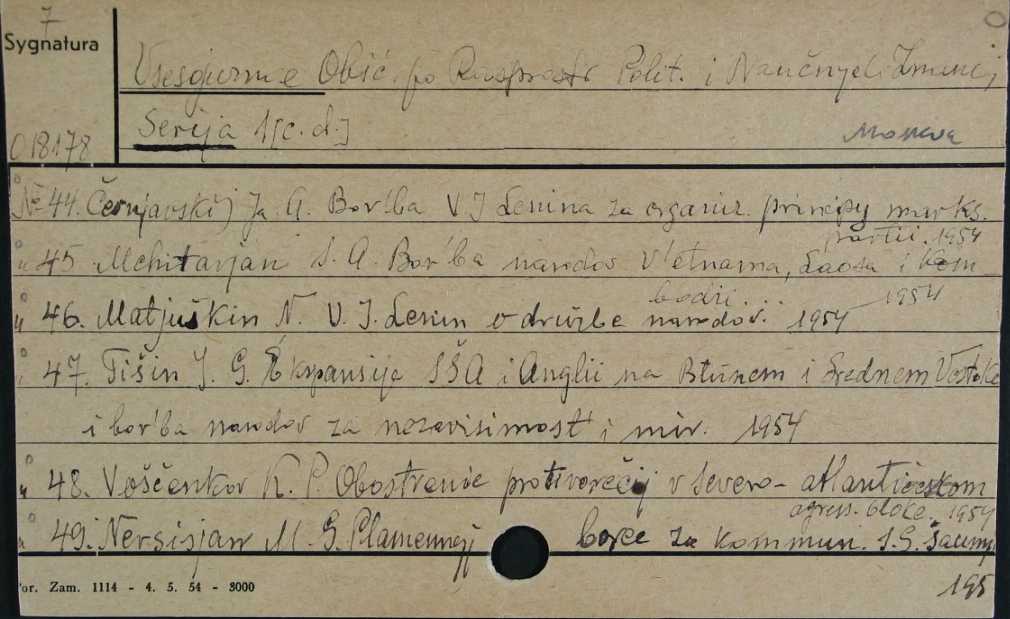 7
Sygnatura
Vsesojuznoe Obšč. po Rasprostr. Polit. i Naučnych Znanij
Serija 1 [c. d.]
Moskva
018178
№ 44. Černjavskij Ja. G. Bor'ba V I Lenina za organiz. principy marks.
partii. 1954
" 45 Mchitarjan S. A. Bor'ba narodov V'etnama, Laosa i Kam
bodži... 1954
" 46. Matjuškin N. V. I. Lenin o družbe narodov. 1954
" 47. Tišin I. G. Ekspansija SŠA i Anglii na Bližnem i Srednem Vostoke
i bor'ba narodov za nezavisimost' i mir. 1954
" 48. Voščenkov K. P. Obostrenie protivorečij v severo-atlantičeskom
agress. bloke. 1954
" 49. Nersisjan M. G. Plamennyj borec za kommun. S. G. Šaumj
195
or. Zam. 1114 - 4. 5. 54 - 3000